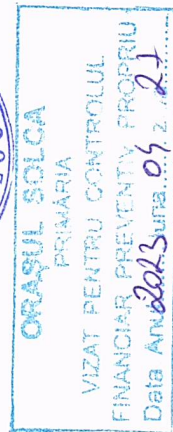 ORAȘUL SOLCA
PRIMĂRIA
VIZAT PENTRU CONTROLUL
FINANCIAR PREVENTIV PROPRIU
Data Anul 2023 luna 04 z 27